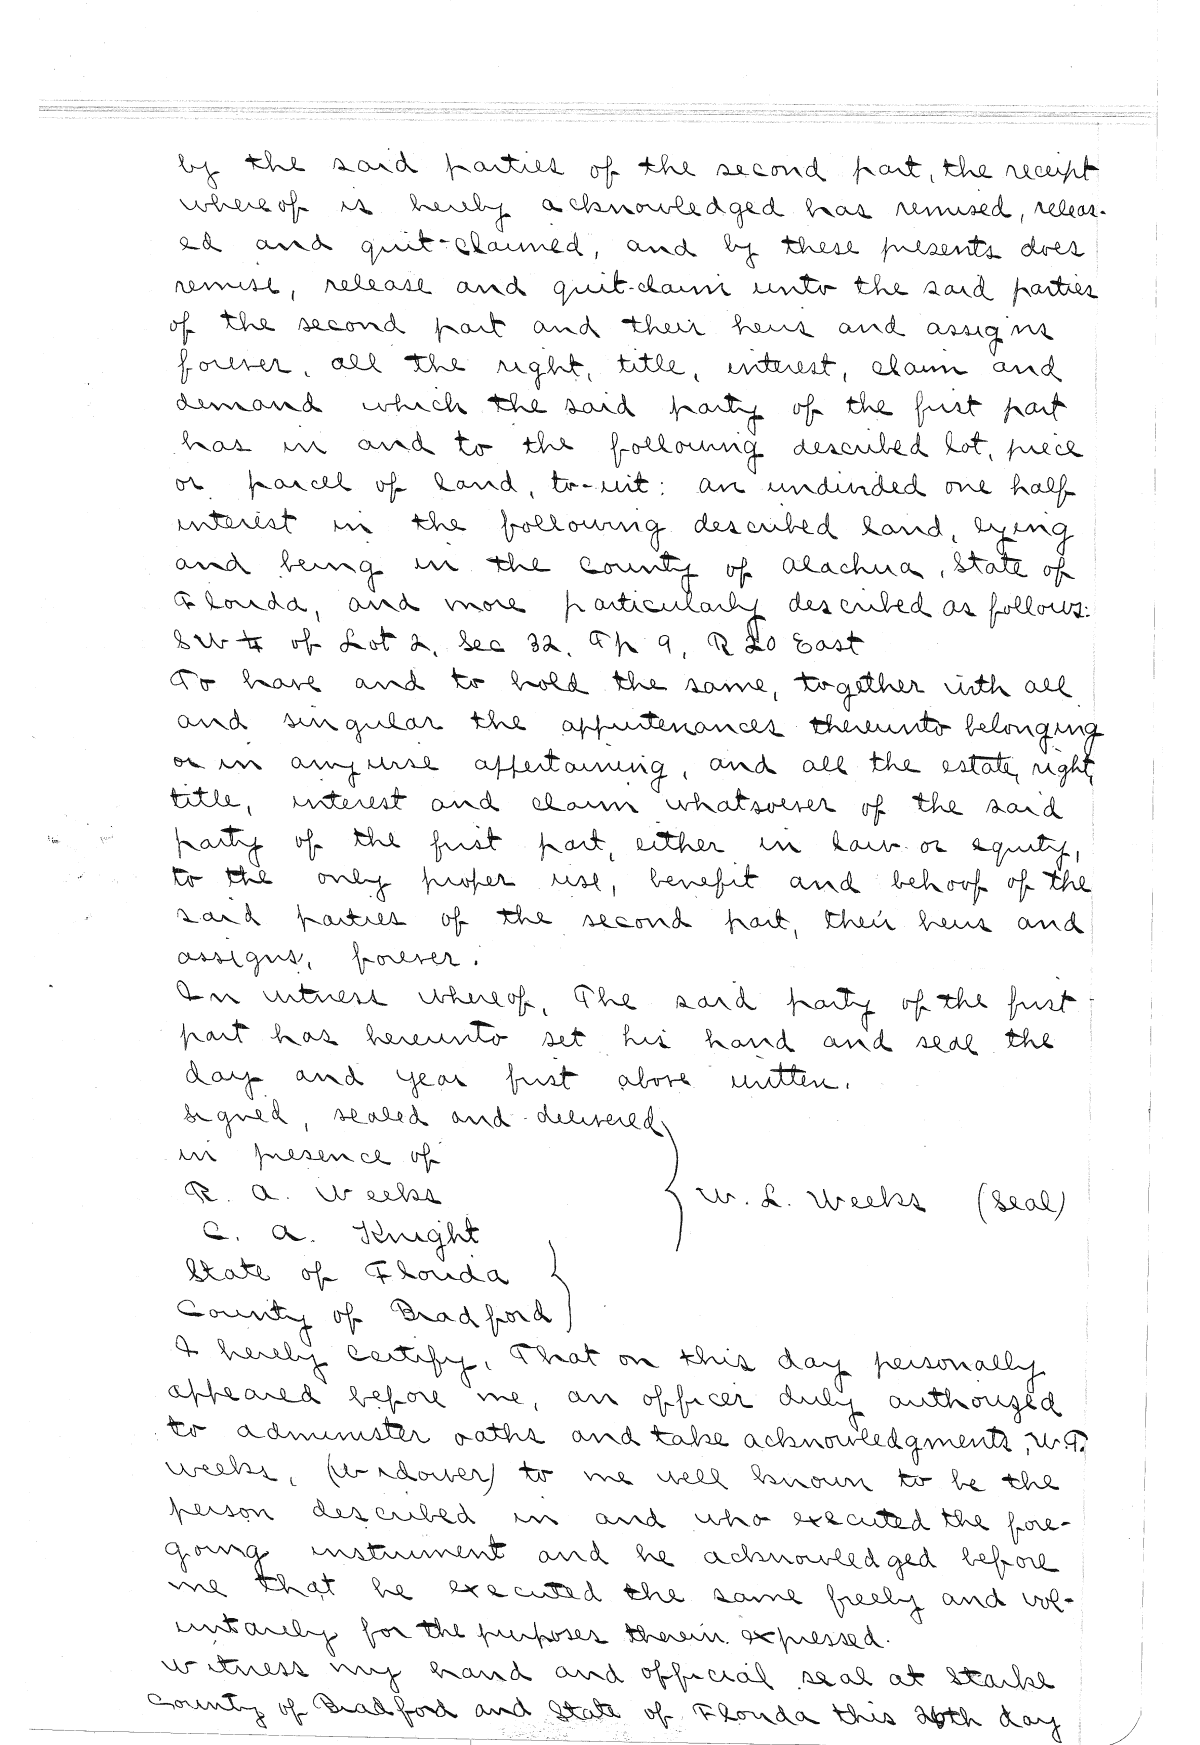 by the said parties of the second part, the receipt
whereof is hereby acknowledged has remised, releas-
ed and quit-claimed, and by these presents does
remise, release and quit-claim unto the said parties
of the second part and their heirs and assigns
forever, all the right, title, interest, claim and
demand which the said party of the first part
has in and to the following described lot, piece
or parcel of land, to-wit: an undivided one half
interest in the following described land, lying
and being in the county of Alachua, State of
Florida, and more particularly described as follows:
SW ¼ of Lot 2, Sec 32, Tp 9, R 20 East
To have and to hold the same, together with all
and singular the appurtenances thereunto belonging
or in anywise appertaining, and all the estate, right,
title, interest and claim whatsoever of the said
party of the first part, either in law or equity,
to the only proper use, benefit and behoof of the
said parties of the second part, their heirs and
assigns, forever.
In witness whereof, The said party of the first
part has hereunto set his hand and seal the
day and year first above written.
Signed, sealed and delivered
in presence of
R. A. Weeks
W. L. Weeks (Seal)
C. A. Knight
State of Florida
County of Bradford
I hereby certify, That on this day personally
appeared before me, an officer duly authorized
to administer oaths and take acknowledgments, W.T.
Weeks, (Widower) to me well known to be the
person described in and who executed the fore-
going instrument and he acknowledged before
me that he executed the same freely and vol-
untarily for the purposes therein expressed.
Witness my hand and official seal at Starke
County of Bradford and State of Florida this 26th day